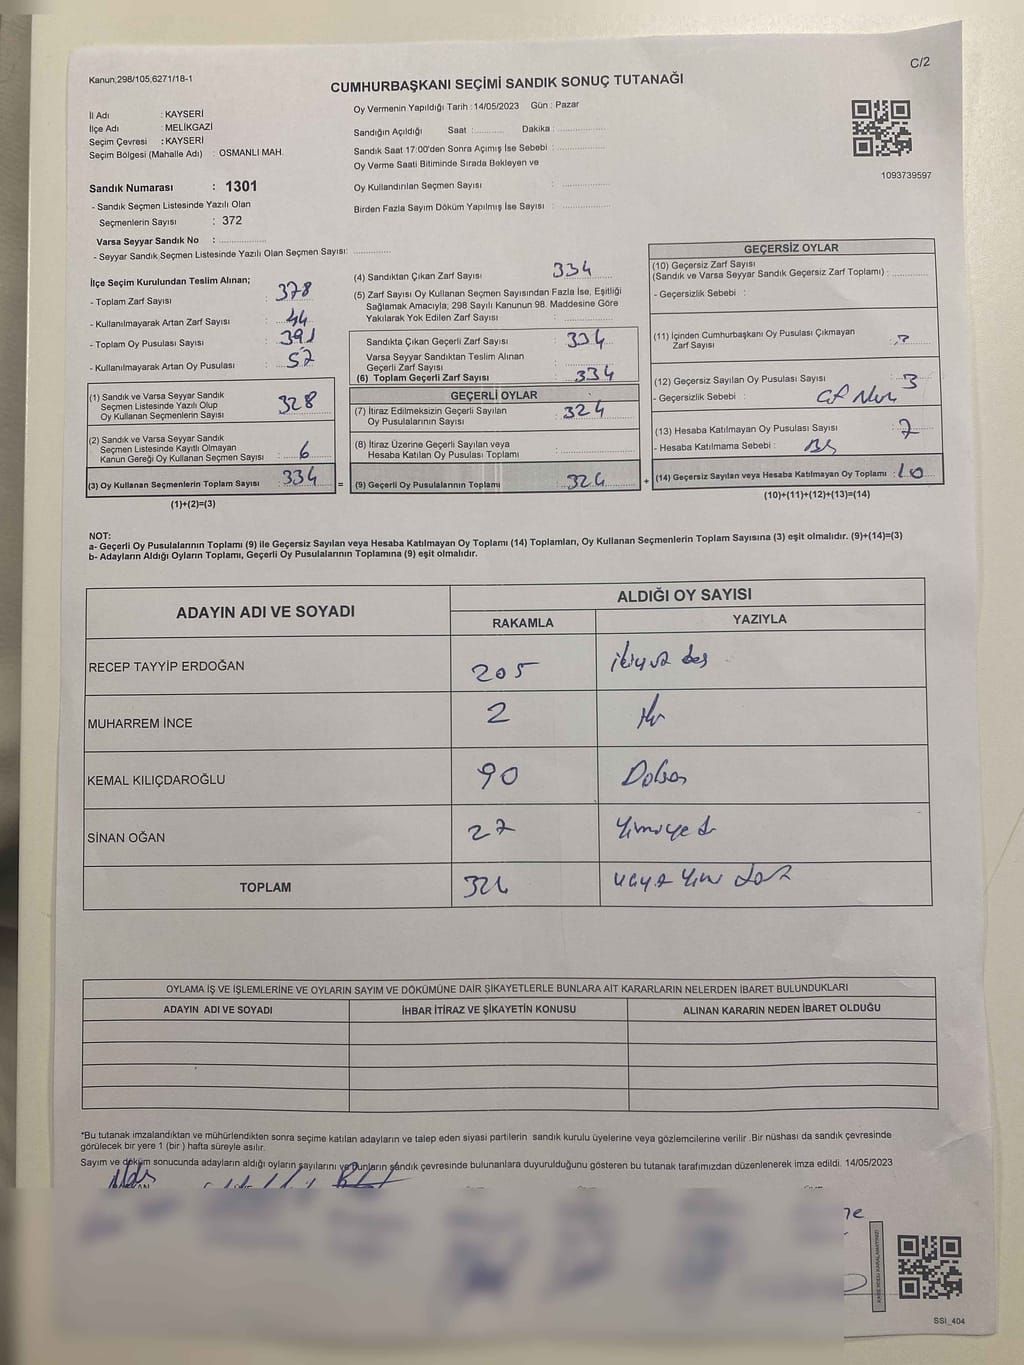 Kanun;298/105,6271/18-1
C/2
CUMHURBAŞKANI SEÇİMİ SANDIK SONUÇ TUTANAĞI
İl Adı : KAYSERİ
İlçe Adı : MELİKGAZİ
Seçim Çevresi : KAYSERİ
Seçim Bölgesi (Mahalle Adı) : OSMANLI MAH.
Sandık Numarası : 1301
- Sandık Seçmen Listesinde Yazılı Olan
Seçmenlerin Sayısı : 372
Varsa Seyyar Sandık No :
- Seyyar Sandık Seçmen Listesinde Yazılı Olan Seçmen Sayısı:
Oy Vermenin Yapıldığı Tarih : 14/05/2023 Gün : Pazar
Sandığın Açıldığı Saat : Dakika :
Sandık Saat 17:00'den Sonra Açımış İse Sebebi :
Oy Verme Saati Bitiminde Sırada Bekleyen ve
Oy Kullandırılan Seçmen Sayısı :
Birden Fazla Sayım Döküm Yapılmış İse Sayısı :
1093739597
İlçe Seçim Kurulundan Teslim Alınan;
- Toplam Zarf Sayısı : 378
- Kullanılmayarak Artan Zarf Sayısı : 44
- Toplam Oy Pusulası Sayısı : 391
- Kullanılmayarak Artan Oy Pusulası : 57
(1) Sandık ve Varsa Seyyar Sandık
Seçmen Listesinde Yazılı Olup
Oy Kullanan Seçmenlerin Sayısı : 328
(2) Sandık ve Varsa Seyyar Sandık
Seçmen Listesinde Kayıtlı Olmayan
Kanun Gereği Oy Kullanan Seçmen Sayısı : 6
(3) Oy Kullanan Seçmenlerin Toplam Sayısı : 334 =
(1)+(2)=(3)
(4) Sandıktan Çıkan Zarf Sayısı : 334
(5) Zarf Sayısı Oy Kullanan Seçmen Sayısından Fazla İse, Eşitliği
Sağlamak Amacıyla, 298 Sayılı Kanunun 98. Maddesine Göre
Yakılarak Yok Edilen Zarf Sayısı :
Sandıkta Çıkan Geçerli Zarf Sayısı : 334
Varsa Seyyar Sandıktan Teslim Alınan
Geçerli Zarf Sayısı :
(6) Toplam Geçerli Zarf Sayısı : 334
GEÇERLİ OYLAR
(7) İtiraz Edilmeksizin Geçerli Sayılan
Oy Pusulalarının Sayısı : 324
(8) İtiraz Üzerine Geçerli Sayılan veya
Hesaba Katılan Oy Pusulası Toplamı :
(9) Geçerli Oy Pusulalarının Toplamı : 324 +
GEÇERSİZ OYLAR
(10) Geçersiz Zarf Sayısı
(Sandık ve Varsa Seyyar Sandık Geçersiz Zarf Toplamı) :
- Geçersizlik Sebebi :
(11) İçinden Cumhurbaşkanı Oy Pusulası Çıkmayan
Zarf Sayısı :
(12) Geçersiz Sayılan Oy Pusulası Sayısı : 3
- Geçersizlik Sebebi :
(13) Hesaba Katılmayan Oy Pusulası Sayısı : 7
- Hesaba Katılmama Sebebi :
(14) Geçersiz Sayılan veya Hesaba Katılmayan Oy Toplamı : 10
(10)+(11)+(12)+(13)=(14)
NOT:
a- Geçerli Oy Pusulalarının Toplamı (9) ile Geçersiz Sayılan veya Hesaba Katılmayan Oy Toplamı (14) Toplamları, Oy Kullanan Seçmenlerin Toplam Sayısına (3) eşit olmalıdır. (9)+(14)=(3)
b- Adayların Aldığı Oyların Toplamı, Geçerli Oy Pusulalarının Toplamına (9) eşit olmalıdır.
ADAYIN ADI VE SOYADI
ALDIĞI OY SAYISI
RAKAMLA YAZIYLA
RECEP TAYYİP ERDOĞAN 205 ikiyüz beş
MUHARREM İNCE 2 iki
KEMAL KILIÇDAROĞLU 90 Doksan
SİNAN OĞAN 27 Yirmiyedi
TOPLAM 324 üçyüz yirmi dört
OYLAMA İŞ VE İŞLEMLERİNE VE OYLARIN SAYIM VE DÖKÜMÜNE DAİR ŞİKAYETLERLE BUNLARA AİT KARARLARIN NELERDEN İBARET BULUNDUKLARI
ADAYIN ADI VE SOYADI İHBAR İTİRAZ VE ŞİKAYETİN KONUSU ALINAN KARARIN NEDEN İBARET OLDUĞU
*Bu tutanak imzalandıktan ve mühürlendikten sonra seçime katılan adayların ve talep eden siyasi partilerin sandık kurulu üyelerine veya gözlemcilerine verilir. Bir nüshası da sandık çevresinde
görülecek bir yere 1 (bir) hafta süreyle asılır.
Sayım ve döküm sonucunda adayların aldığı oyların sayılarını ve bunların sandık çevresinde bulunanlara duyurulduğunu gösteren bu tutanak tarafımızdan düzenlenerek imza edildi. 14/05/2023
SSI_404